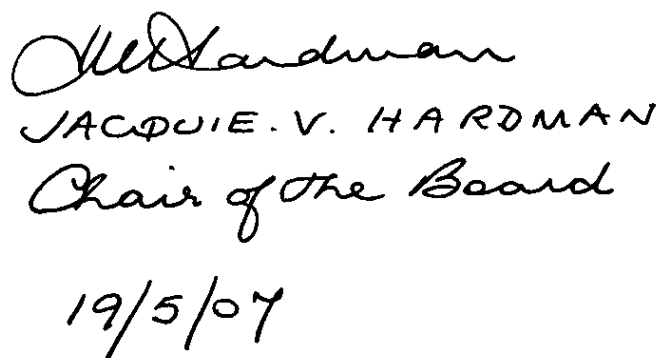 JV Hardman
JACQUIE. V. HARDMAN
Chair of the Board
19/5/07